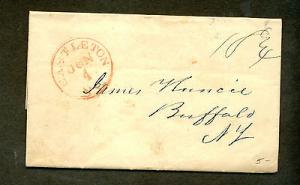 CASTLETON
JUN
4
18¾
James Nuncie
Buffalo
NY
5-